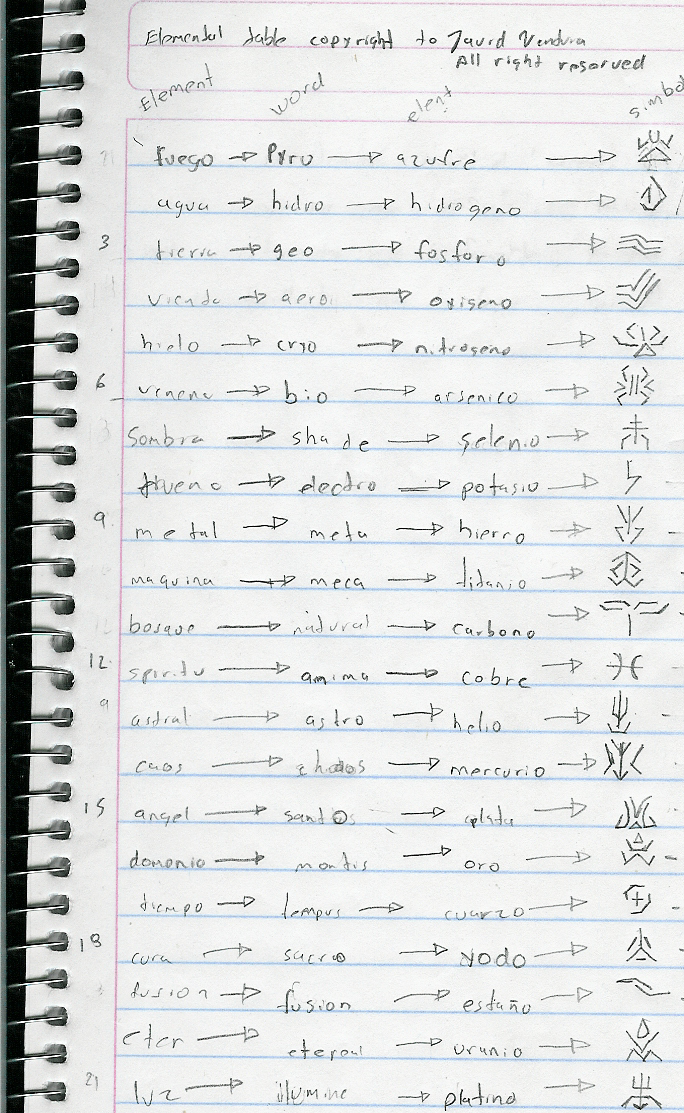 Elemental table copyright to David Vendura
All right reserved
Element word elent simbol
fuego → Pyro → azufre →
agua → hidro → hidrogeno →
3 tierra → geo → fosforo →
viento → aero → oxigeno →
hielo → cryo → nitrogeno →
6 veneno → bio → arsenico →
sombra → shade → selenio →
trueno → electro → potasio →
9 metal → meta → hierro →
maquina → meca → titanio →
bosque → natural → carbono →
12 spiritu → amima → cobre →
astral → astro → helio →
caos → chaos → mercurio →
15 angel → santos → plata →
domonio → montis → oro →
tiempo → tempus → cuarzo →
18 cura → sacro → yodo →
fusion → fusion → estaño →
eter → etereal → uranio →
21 luz → ilumine → platino →